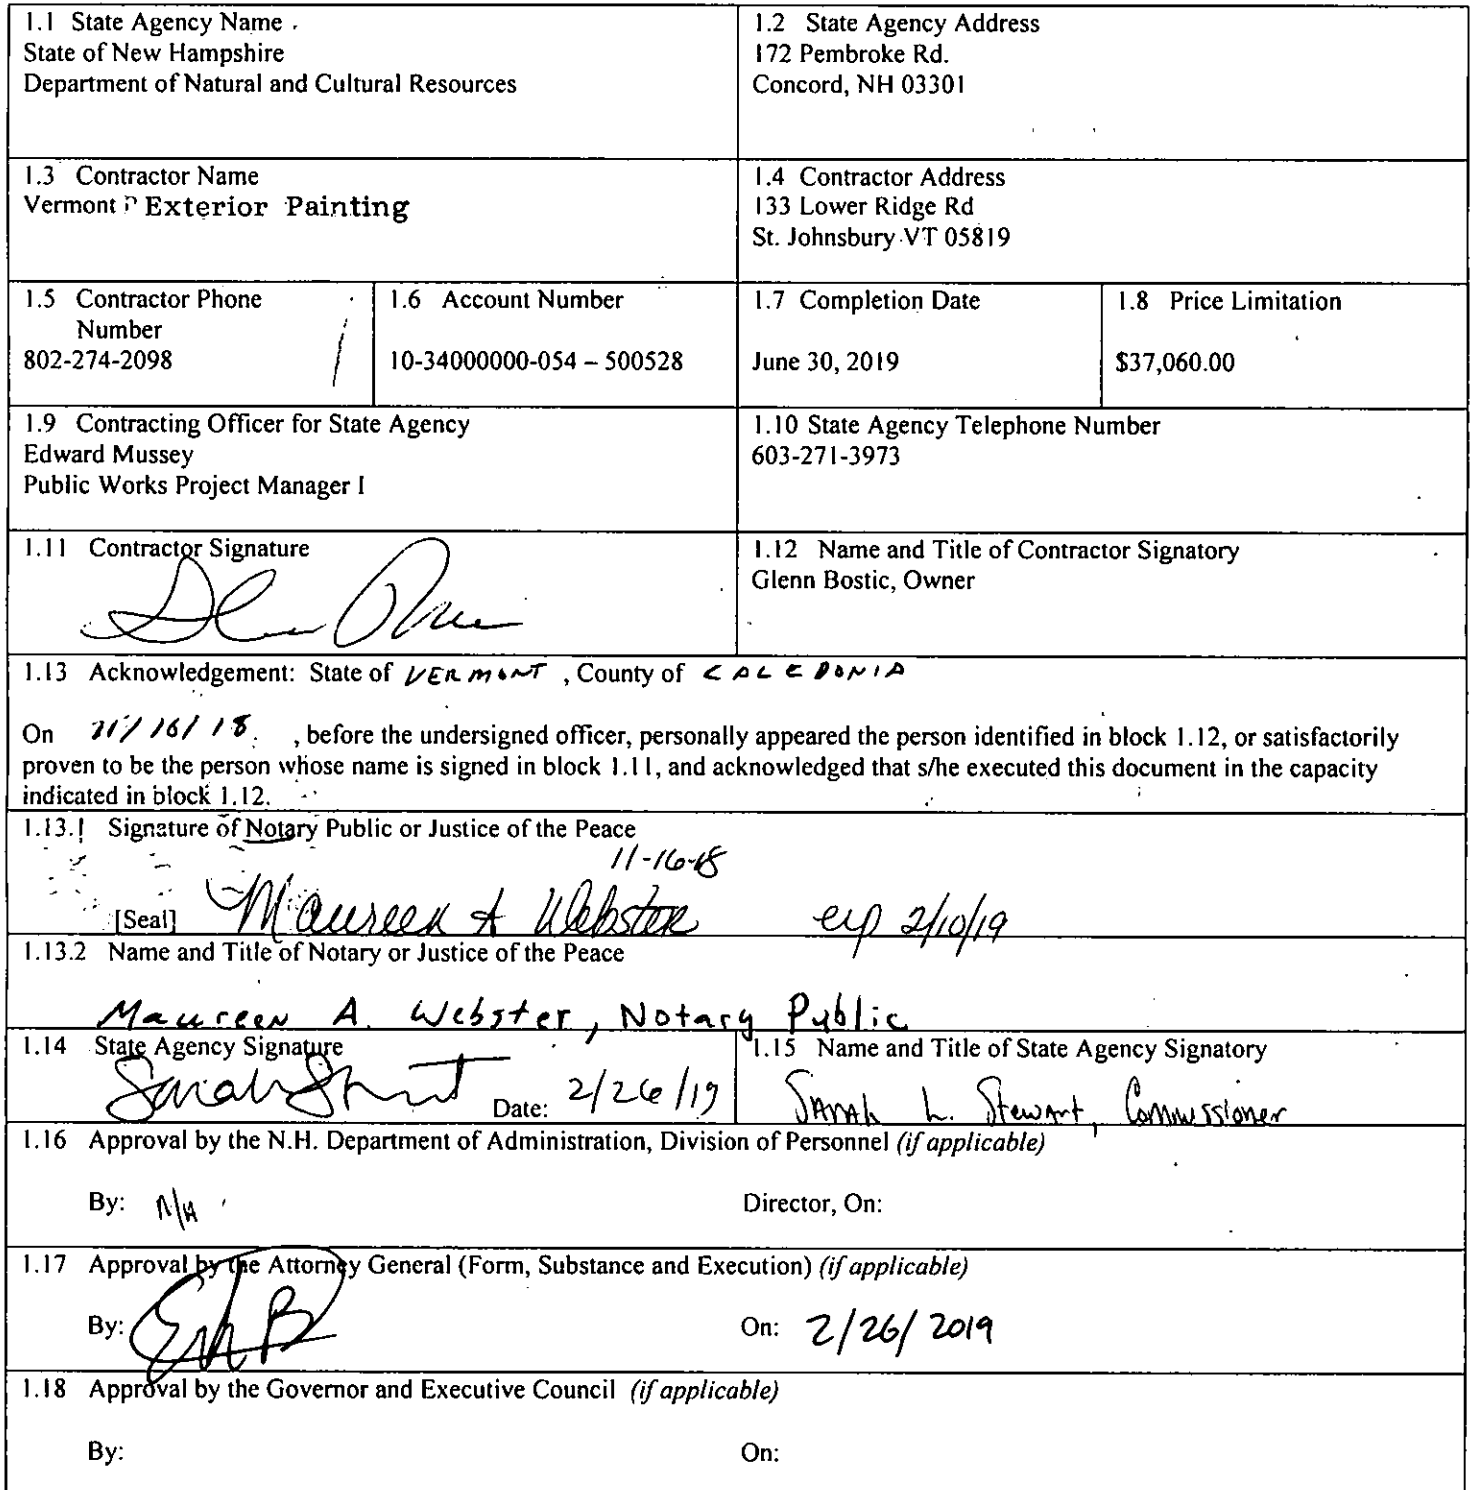 1.1 State Agency Name
State of New Hampshire
Department of Natural and Cultural Resources
1.2 State Agency Address
172 Pembroke Rd.
Concord, NH 03301
1.3 Contractor Name
Vermont Exterior Painting
1.4 Contractor Address
133 Lower Ridge Rd
St. Johnsbury VT 05819
1.5 Contractor Phone
Number
802-274-2098
1.6 Account Number
10-34000000-054 – 500528
1.7 Completion Date
June 30, 2019
1.8 Price Limitation
$37,060.00
1.9 Contracting Officer for State Agency
Edward Mussey
Public Works Project Manager I
1.10 State Agency Telephone Number
603-271-3973
1.11 Contractor Signature
1.12 Name and Title of Contractor Signatory
Glenn Bostic, Owner
1.13 Acknowledgement: State of VERMONT , County of CALEDONIA
On 11/16/18 , before the undersigned officer, personally appeared the person identified in block 1.12, or satisfactorily
proven to be the person whose name is signed in block 1.11, and acknowledged that s/he executed this document in the capacity
indicated in block 1.12.
1.13.1 Signature of Notary Public or Justice of the Peace
11-16-18
[Seal] Maureen A Webster exp 2/10/19
1.13.2 Name and Title of Notary or Justice of the Peace
Maureen A. Webster, Notary Public
1.14 State Agency Signature
Sarah Stewart Date: 2/26/19
1.15 Name and Title of State Agency Signatory
Sarah L. Stewart, Commissioner
1.16 Approval by the N.H. Department of Administration, Division of Personnel (if applicable)
By: N/A Director, On:
1.17 Approval by the Attorney General (Form, Substance and Execution) (if applicable)
By: On: 2/26/2019
1.18 Approval by the Governor and Executive Council (if applicable)
By: On: